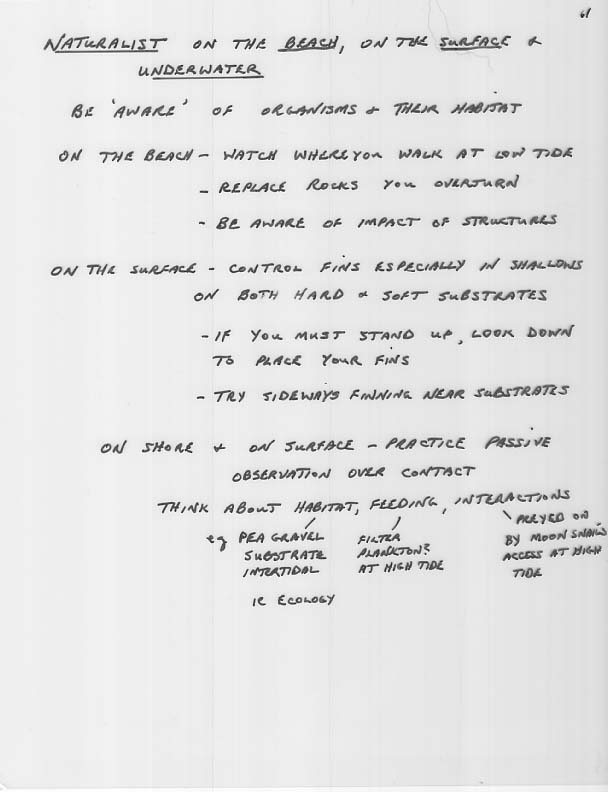 61
NATURALIST ON THE BEACH, ON THE SURFACE &
UNDERWATER
BE 'AWARE' OF ORGANISMS & THEIR HABITAT
ON THE BEACH - WATCH WHERE YOU WALK AT LOW TIDE
- REPLACE ROCKS YOU OVERTURN
- BE AWARE OF IMPACT OF STRUCTURES
ON THE SURFACE - CONTROL FINS ESPECIALLY IN SHALLOWS
ON BOTH HARD & SOFT SUBSTRATES
- IF YOU MUST STAND UP, LOOK DOWN
TO PLACE YOUR FINS
- TRY SIDEWAYS FINNING NEAR SUBSTRATES
ON SHORE & ON SURFACE - PRACTICE PASSIVE
OBSERVATION OVER CONTACT
THINK ABOUT HABITAT, FEEDING, INTERACTIONS
eg PEA GRAVEL
SUBSTRATE
INTERTIDAL
FILTER
PLANKTON?
AT HIGH TIDE
PREYED ON
BY MOON SNAILS
ACCESS AT HIGH
TIDE
IE ECOLOGY